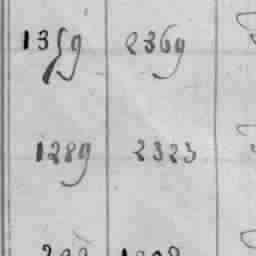 1359 2369
1289 2323